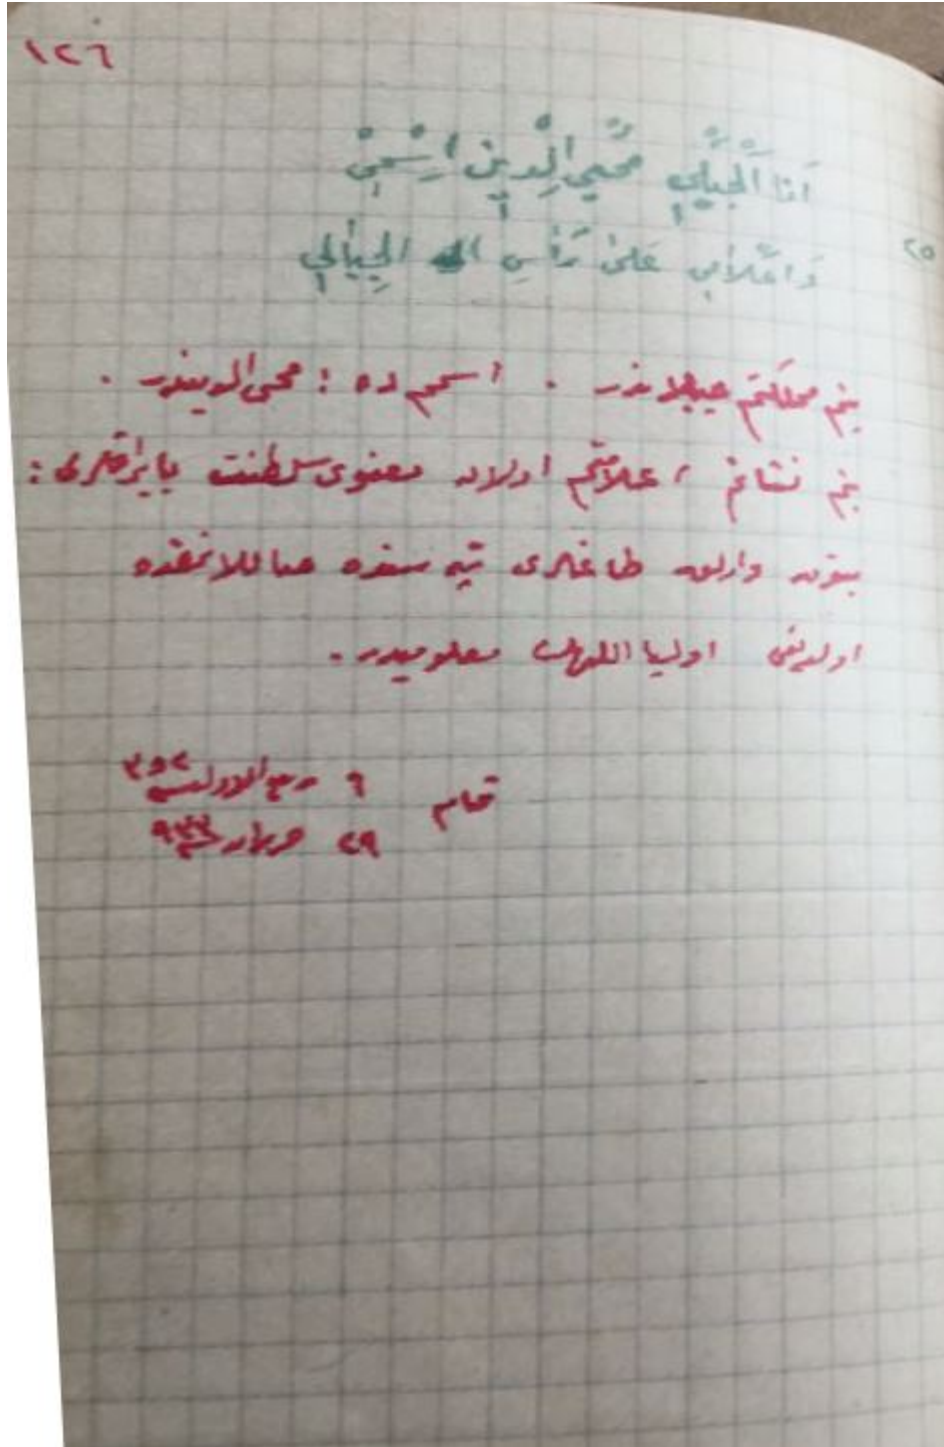 ١٢٦
٢٥
اَنَا الْجِيْلِيُّ مُحْيِي الدِّينِ اِسْمِيْ
وَاَعْلَامِي عَلَىٰ رَأْسِ الْجِبَالِي
بنم مملكتم جيلاندر . اسمم ده : محى الديندر .
بنم نشانم ، علامتم اولان معنوى سلطنت بايراقلرى :
بوتون وارلق طاغلرى تپه سنده
اولديغى اوليا اللهك معلوميدر .
تمام ٦ ربيع الاول سنه ٣٥٢
٢٩ حزيران ٩٣٣